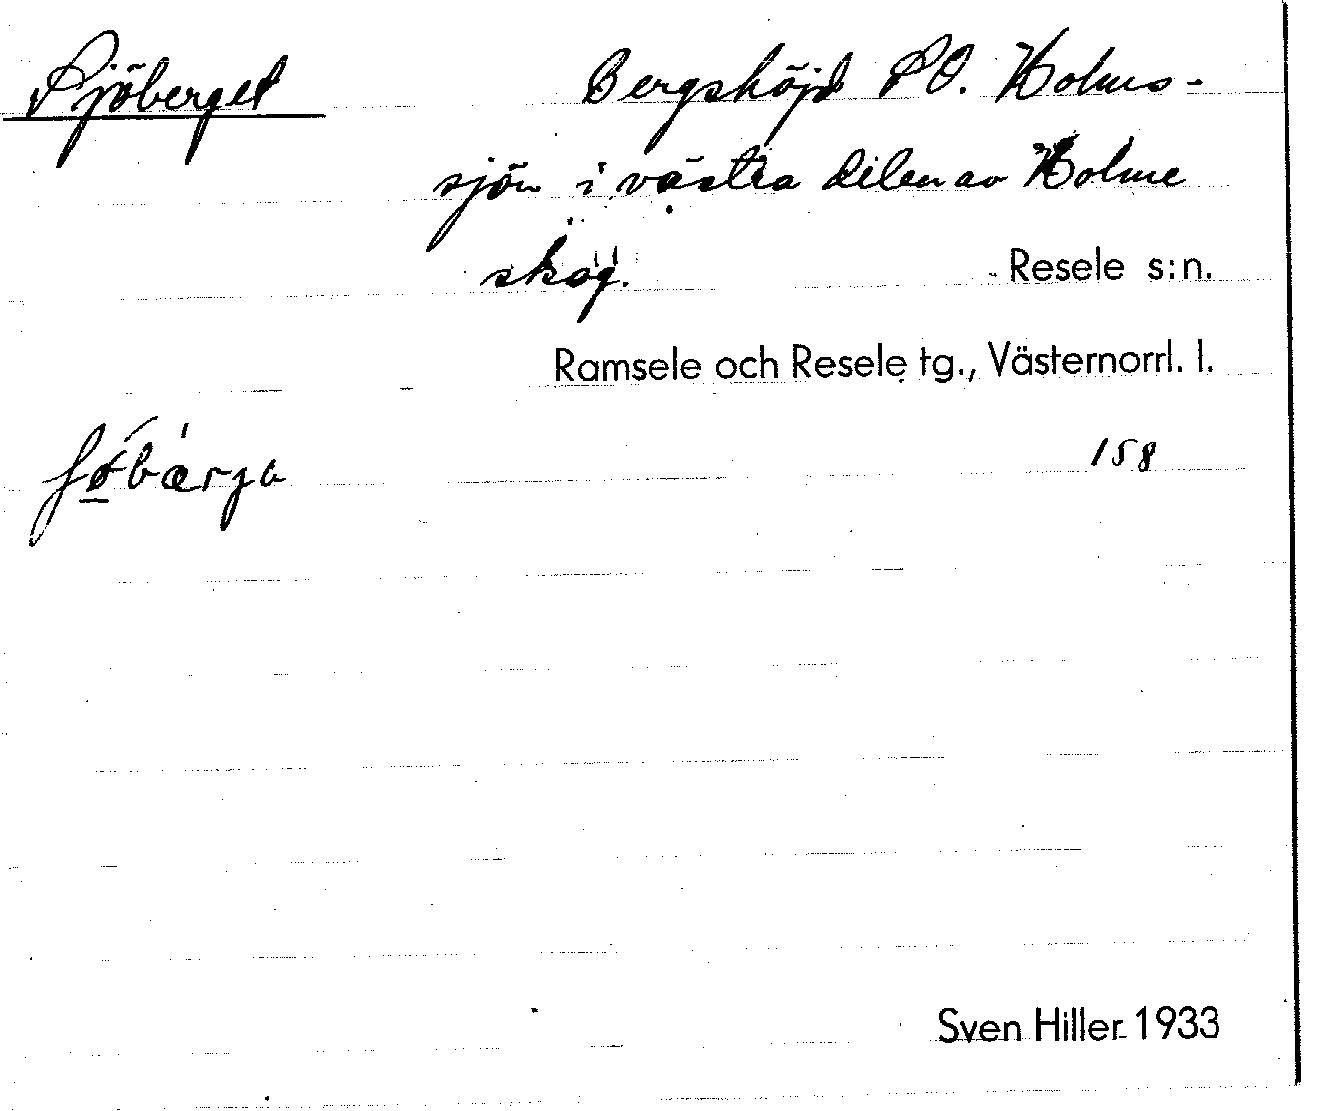 Sjöberget Bergshöjd SO. Holms-
sjön i västra delen av Holme
skog. Resele s:n.
Ramsele och Resele tg., Västernorrl. l.
158
Sven Hiller 1933